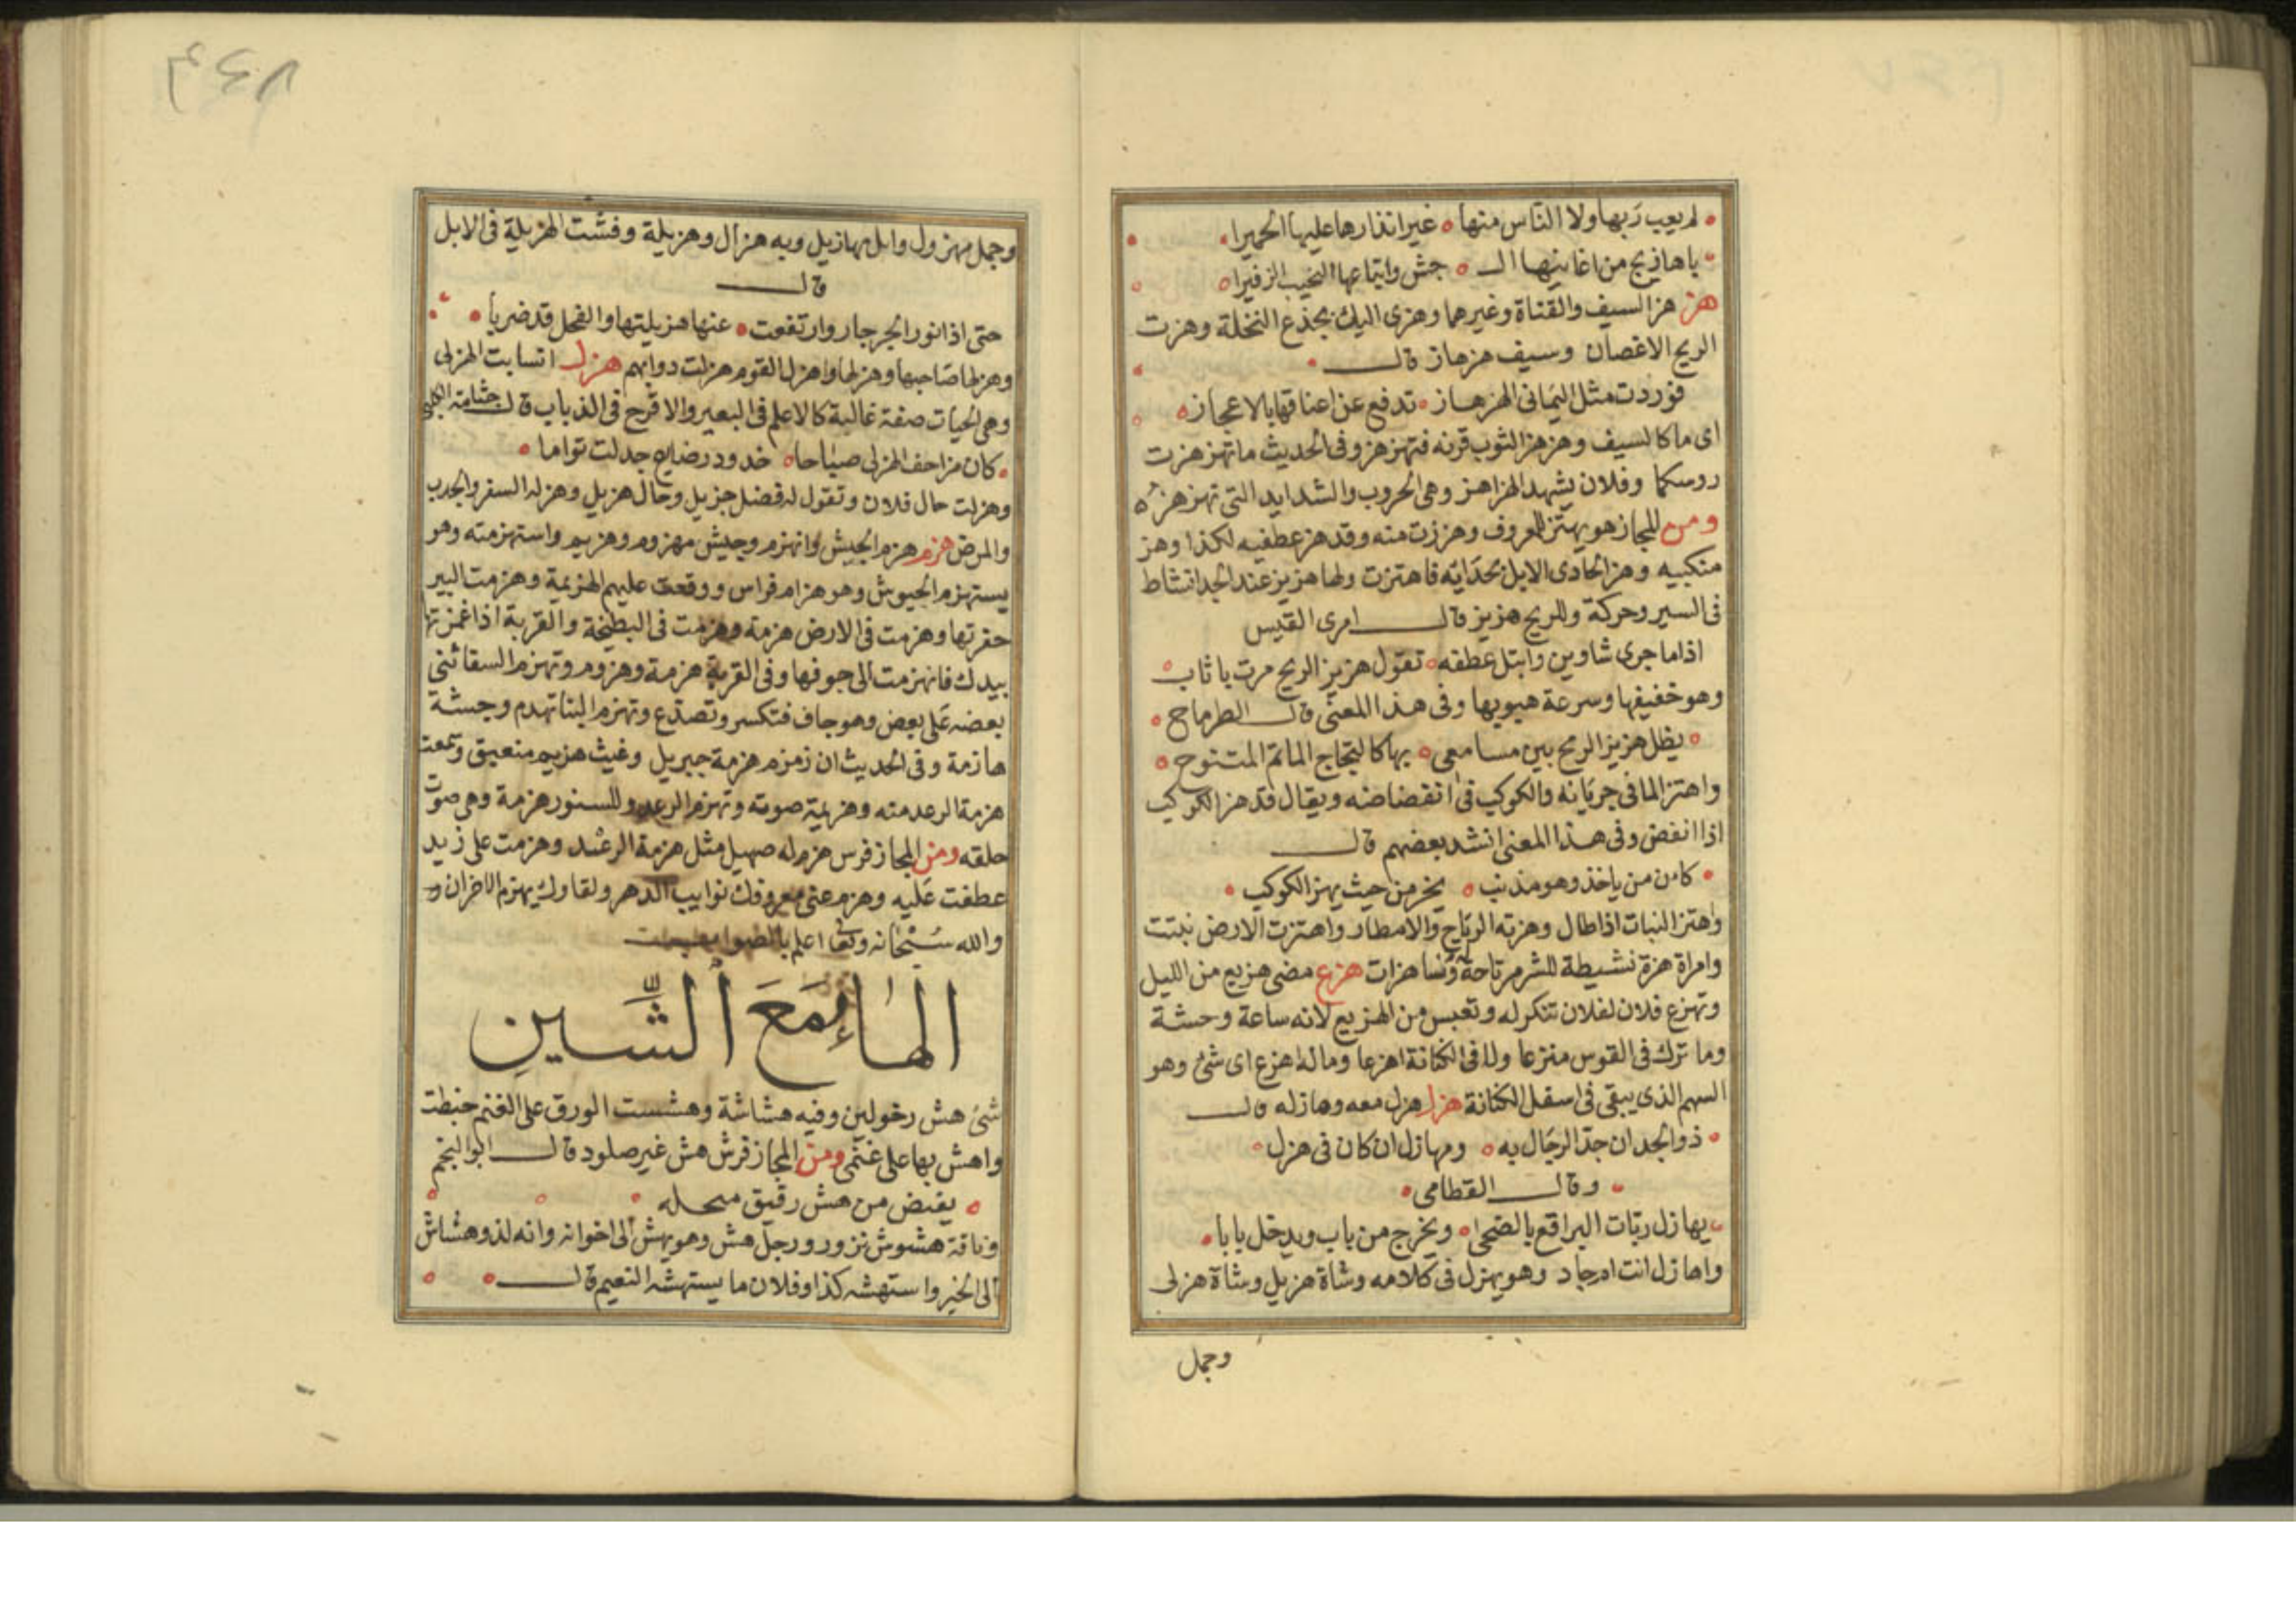 لم يعب ربها ولا الناس منها غير انذارها عليها الحميرا
باهازيج من اغانيها الـ جش واتباعها النحيب الزفيرا
هز هز السيف والقناة وغيرهما وهزى اليك بجذع النخلة وهزت
الريح الاغصان وسيف هزهاز قال
فوردت مثل اليمانى الهزهاز تدفع عن اعناقها بالاعجاز
اى ماكالسيف وهزهز الثوب قرنه فتهزهز وفى الحديث ماتهزهزت
روسكما وفلان يشهد الهزاهز وهى الحروب والشدايد التى تهزهز
ومن المجاز هو يهتز للمعروف وهززت منه وقد هز عطفيه لكذا وهز
منكبيه وهز الحادى الابل بحدايه فاهتزت ولها هزيز عند الحد انشاط
فى السير وحركة وللريح هزيز قال امرى القيس
اذا ما جرى شاوين وابتل عطفه تقول هزيز الريح مرت باثاب
وهو خفيفها وسرعة هبوبها وفى هذا المعنى قال الطرماح
يظل هزيز الريح بين مسامعى بها كالتجاج الماتم المتنوح
واهتز الما فى جريانه والكوكب فى انقضاضه ويقال قد هز الكوكب
اذا انفض وفى هذا المعنى انشد بعضهم قال
كامن من ياخذ وهو مذنب يخر من حيث يهز الكوكب
واهتز النبات اذا طال وهزته الرياح والامطار واهتزت الارض نبتت
وامراة هزة نشيطة للشر مرتاحة ونسا هزات هزع مضى هزيع من الليل
وتهزع فلان لفلان تنكر له وتعبس من الهزيع لانه ساعة وحشة
وما ترك فى القوس منزعا ولا فى الكنانة اهزعا وماله اهزع اى شئ وهو
السهم الذى يبقى فى اسفل الكنانة هزل هزل معه وهازله قال
ذو الجد ان جد الرجال به ومهازل ان كان فى هزل
وقال القطامى
يهازل ربات البراقع بالضحى ويخرج من باب ويدخل بابا
واهازل انت ام جاد وهو يهزل فى كلامه وشاة هزيل وشاة هزلى
وجمل
٣٤٨
وجمل مهزول وابل مهازيل وبه هزال وهزيلة وفشت الهزيلة فى الابل
قال
حتى اذا نور الجرجار وارتفعت عنها هزيلتها والفحل قد ضربا
وهزلها صاحبها وهزلها واهزل القوم هزلت دوابهم هزل انسابت الهزلى
وهى الحيات صفة غالبة كالاعلم فى البعير والاقرح فى الذباب قال جثامة الكلبى
كان مزاحف الهزلى صباحا خدود رضايع جدلت تواما
وهزلت حال فلان وتقول له فضل جزيل وحال هزيل وهزله السفر والجدب
والمرض هزم هزم الجيش وانهزم وجيش مهزوم وهزيم واستهزمته وهو
يستهزم الجيوش وهو هزام فراس ووقعت عليهم الهزيمة وهزمت البير
حفرتها وهزمت فى الارض هزمة وهزمت فى البطيخة والقربة اذا غمزتها
بيدك فانهزمت الى جوفها وفى القربة هزمة وهزوم وتهزم السقا ثنى
بعضه على بعض وهو جاف فتكسر وتصدع وتهزم البنا تهدم وجشة
هازمة وفى الحديث ان زمزم هزمة جبريل وغيث هزيم منعيق وسمعت
هزمة الرعد منه وهزيمة صوته وتهزم الرعد وللسنور هزمة وهى صوت
حلقه ومن المجاز فرس هزم له صهيل مثل هزمة الرعد وهزمت على زيد
عطفت عليه وهزم عنى معروفك نوايب الدهر ولقاوك يهزم الاخران و
والله سبحانه وتعا اعلم بالصواب
الهاء مع الشين
شئ هش رخو لين وفيه هشاشة وهششت الورق على الغنم خبطت
واهش بها على غنمى ومن المجاز فرش هش غير صلود قال ابو النجم
يفيض من هش رقيق مسحله
وناقة هشوش نزور ورجل هش وهو يهش الى اخوانه وانه لذو هشاش
الى الخير واستهشه كذا وفلان ما يستهشه النعيم قال